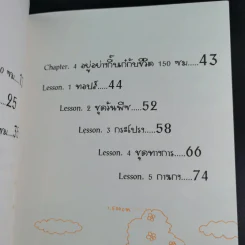 Chapter. 4 อยู่อย่างกิ๊บเก๋กับชีวิต 150 ซม.....43
Lesson. 1 ทอปส์.....44
Lesson. 2 ชุดวันพีซ.....52
Lesson. 3 กระโปรง.....58
Lesson. 4 ชุดทางการ.....66
Lesson. 5 กางเกง.....74
25